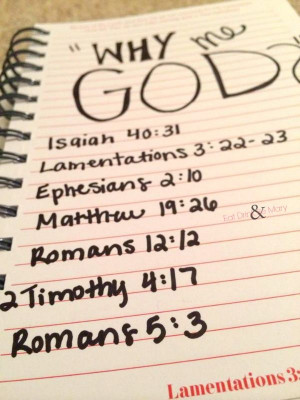 "WHY me
GOD?"
Isaiah 40:31
Lamentations 3:22-23
Ephesians 2:10
Matthew 19:26
Eat Drink & Mary
Romans 12:12
2 Timothy 4:17
Romans 5:3
Lamentations 3: